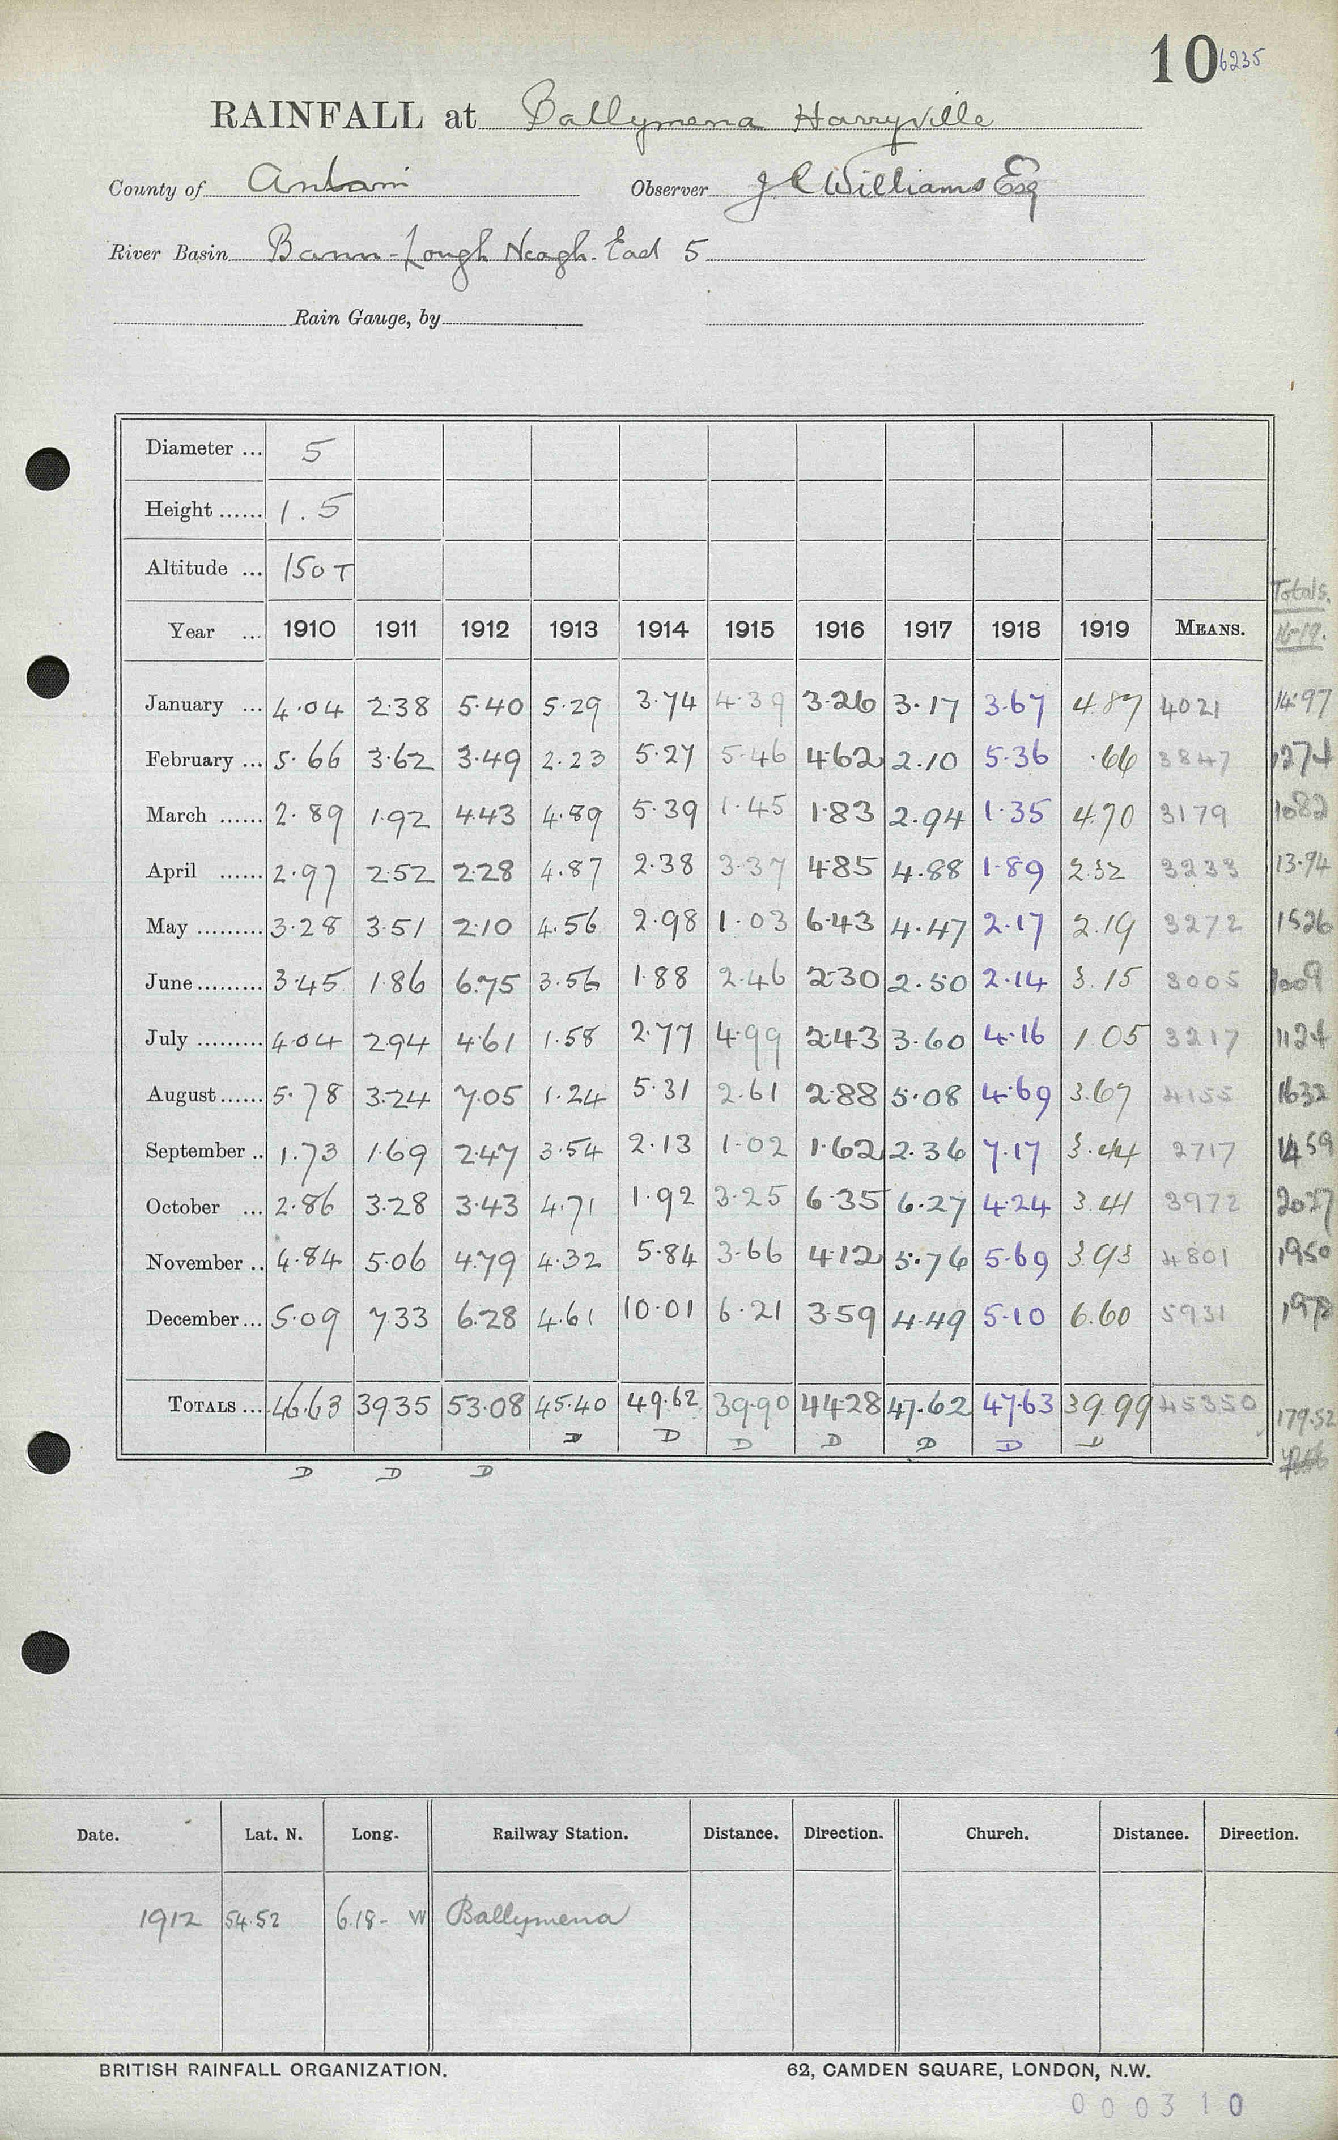 10 6235
RAINFALL at Ballymena Harryville
County of Antrim Observer J C Williams Esq
River Basin Bann - Lough Neagh. East 5
Rain Gauge, by
Diameter ... 5
Height ...... 1.5
Altitude ... 150 T
Totals.
Year ... 1910 1911 1912 1913 1914 1915 1916 1917 1918 1919 MEANS. 16-19.
January ... 4.04 2.38 5.40 5.29 3.74 4.39 3.26 3.17 3.67 4.87 4021 14.97
February ... 5.66 3.62 3.49 2.23 5.27 5.46 4.62 2.10 5.36 .66 3847 1274
March ...... 2.89 1.92 4.43 4.89 5.39 1.45 1.83 2.94 1.35 4.70 3179 1082
April ...... 2.97 2.52 2.28 4.87 2.38 3.37 4.85 4.88 1.89 2.32 3233 13.94
May ......... 3.28 3.51 2.10 4.56 2.98 1.03 6.43 4.47 2.17 2.19 3272 1526
June ......... 3.45 1.86 6.75 3.56 1.88 2.46 2.30 2.50 2.14 3.15 3005 1009
July ......... 4.04 2.94 4.61 1.58 2.77 4.99 2.43 3.60 4.16 1.05 3217 1124
August ...... 5.78 3.24 7.05 1.24 5.31 2.61 2.88 5.08 4.69 3.67 4155 1632
September .. 1.73 1.69 2.47 3.54 2.13 1.02 1.62 2.36 7.17 3.44 2717 1459
October ... 2.86 3.28 3.43 4.71 1.92 3.25 6.35 6.27 4.24 3.41 3972 2027
November .. 4.84 5.06 4.79 4.32 5.84 3.66 4.12 5.76 5.69 3.93 4801 1950
December ... 5.09 7.33 6.28 4.61 10.01 6.21 3.59 4.49 5.10 6.60 5931 1978
TOTALS ... 46.63 39.35 53.08 45.40 49.62 39.90 44.28 47.62 47.63 39.99 45350 179.52
D D D D D D D
D D D
Date. Lat. N. Long. Railway Station. Distance. Direction. Church. Distance. Direction.
1912 54.52 6.18- W Ballymena
BRITISH RAINFALL ORGANIZATION. 62, CAMDEN SQUARE, LONDON, N.W.
000310